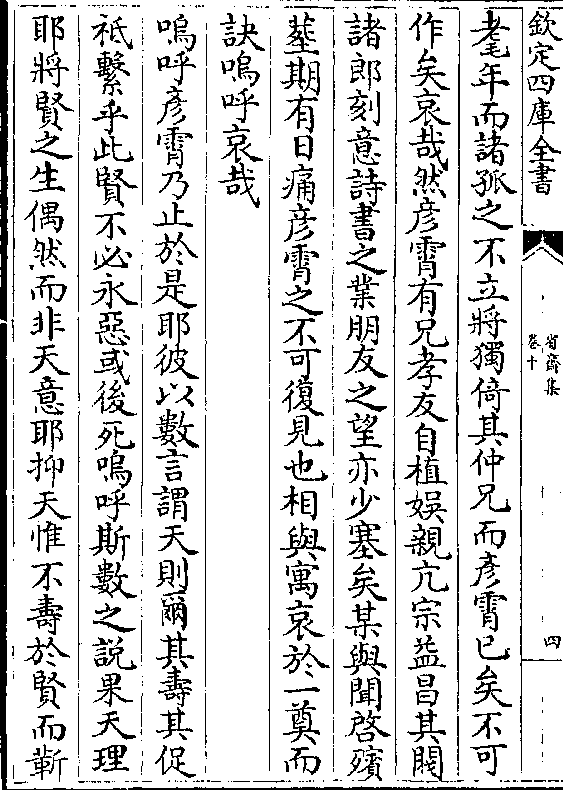 欽定四庫全書
省齋集
卷十
四
耄年而諸孤之不立將獨倚其仲兄而彥霄已矣不可
作矣哀哉然彥霄有兄孝友自植娛親亢宗益昌其閥
諸郎刻意詩書之業朋友之望亦少塞矣某與聞啓殯
塟期有日痛彥霄之不可復見也相與寓哀於一奠而
訣嗚呼哀哉
嗚呼彥霄乃止於是耶彼以數言謂天則爾其壽其促
祗繫乎此賢不必永惡或後死嗚呼斯數之說果天理
耶將賢之生偶然而非天意耶抑天惟不壽於賢而蘄